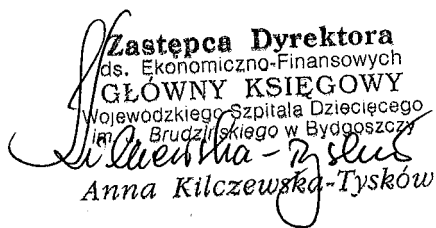 Zastępca Dyrektora
ds. Ekonomiczno-Finansowych
GŁÓWNY KSIĘGOWY
Wojewodzkiego Szpitala Dziecięcego
im. J. Brudzińskiego w Bydgoszczy
Kilczewska-Tysków
Anna Kilczewska-Tysków